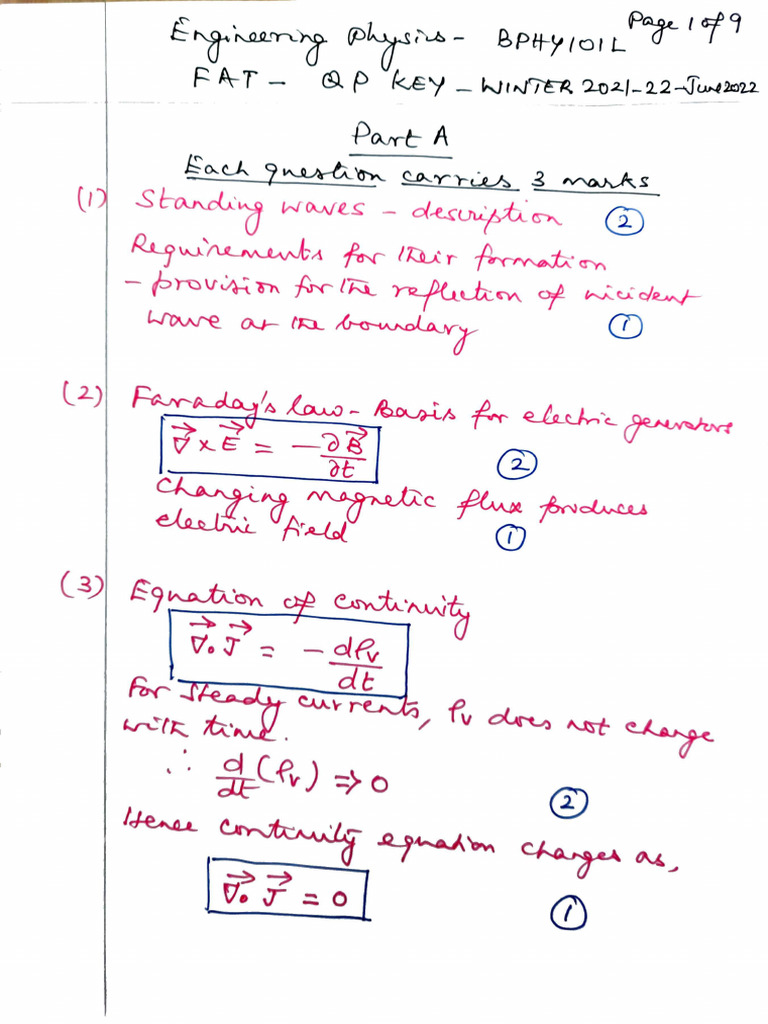 Page 1 of 9
Engineering Physics - BPHY101L
FAT - QP KEY - WINTER 2021-22-June2022
Part A
Each question carries 3 marks
(1) Standing waves - description (2)
Requirements for their formation
- provision for the reflection of incident
wave at the boundary (1)
(2) Faraday's law - Basis for electric generators
∇⃗ × E⃗ = - ∂B⃗/∂t (2)
Changing magnetic flux produces
electric field (1)
(3) Equation of continuity
∇⃗ . J⃗ = - dρv/dt
For steady currents, ρv does not change
with time.
∴ d/dt (ρv) ⇒ 0 (2)
Hence continuity equation changes as,
∇⃗ . J⃗ = 0 (1)